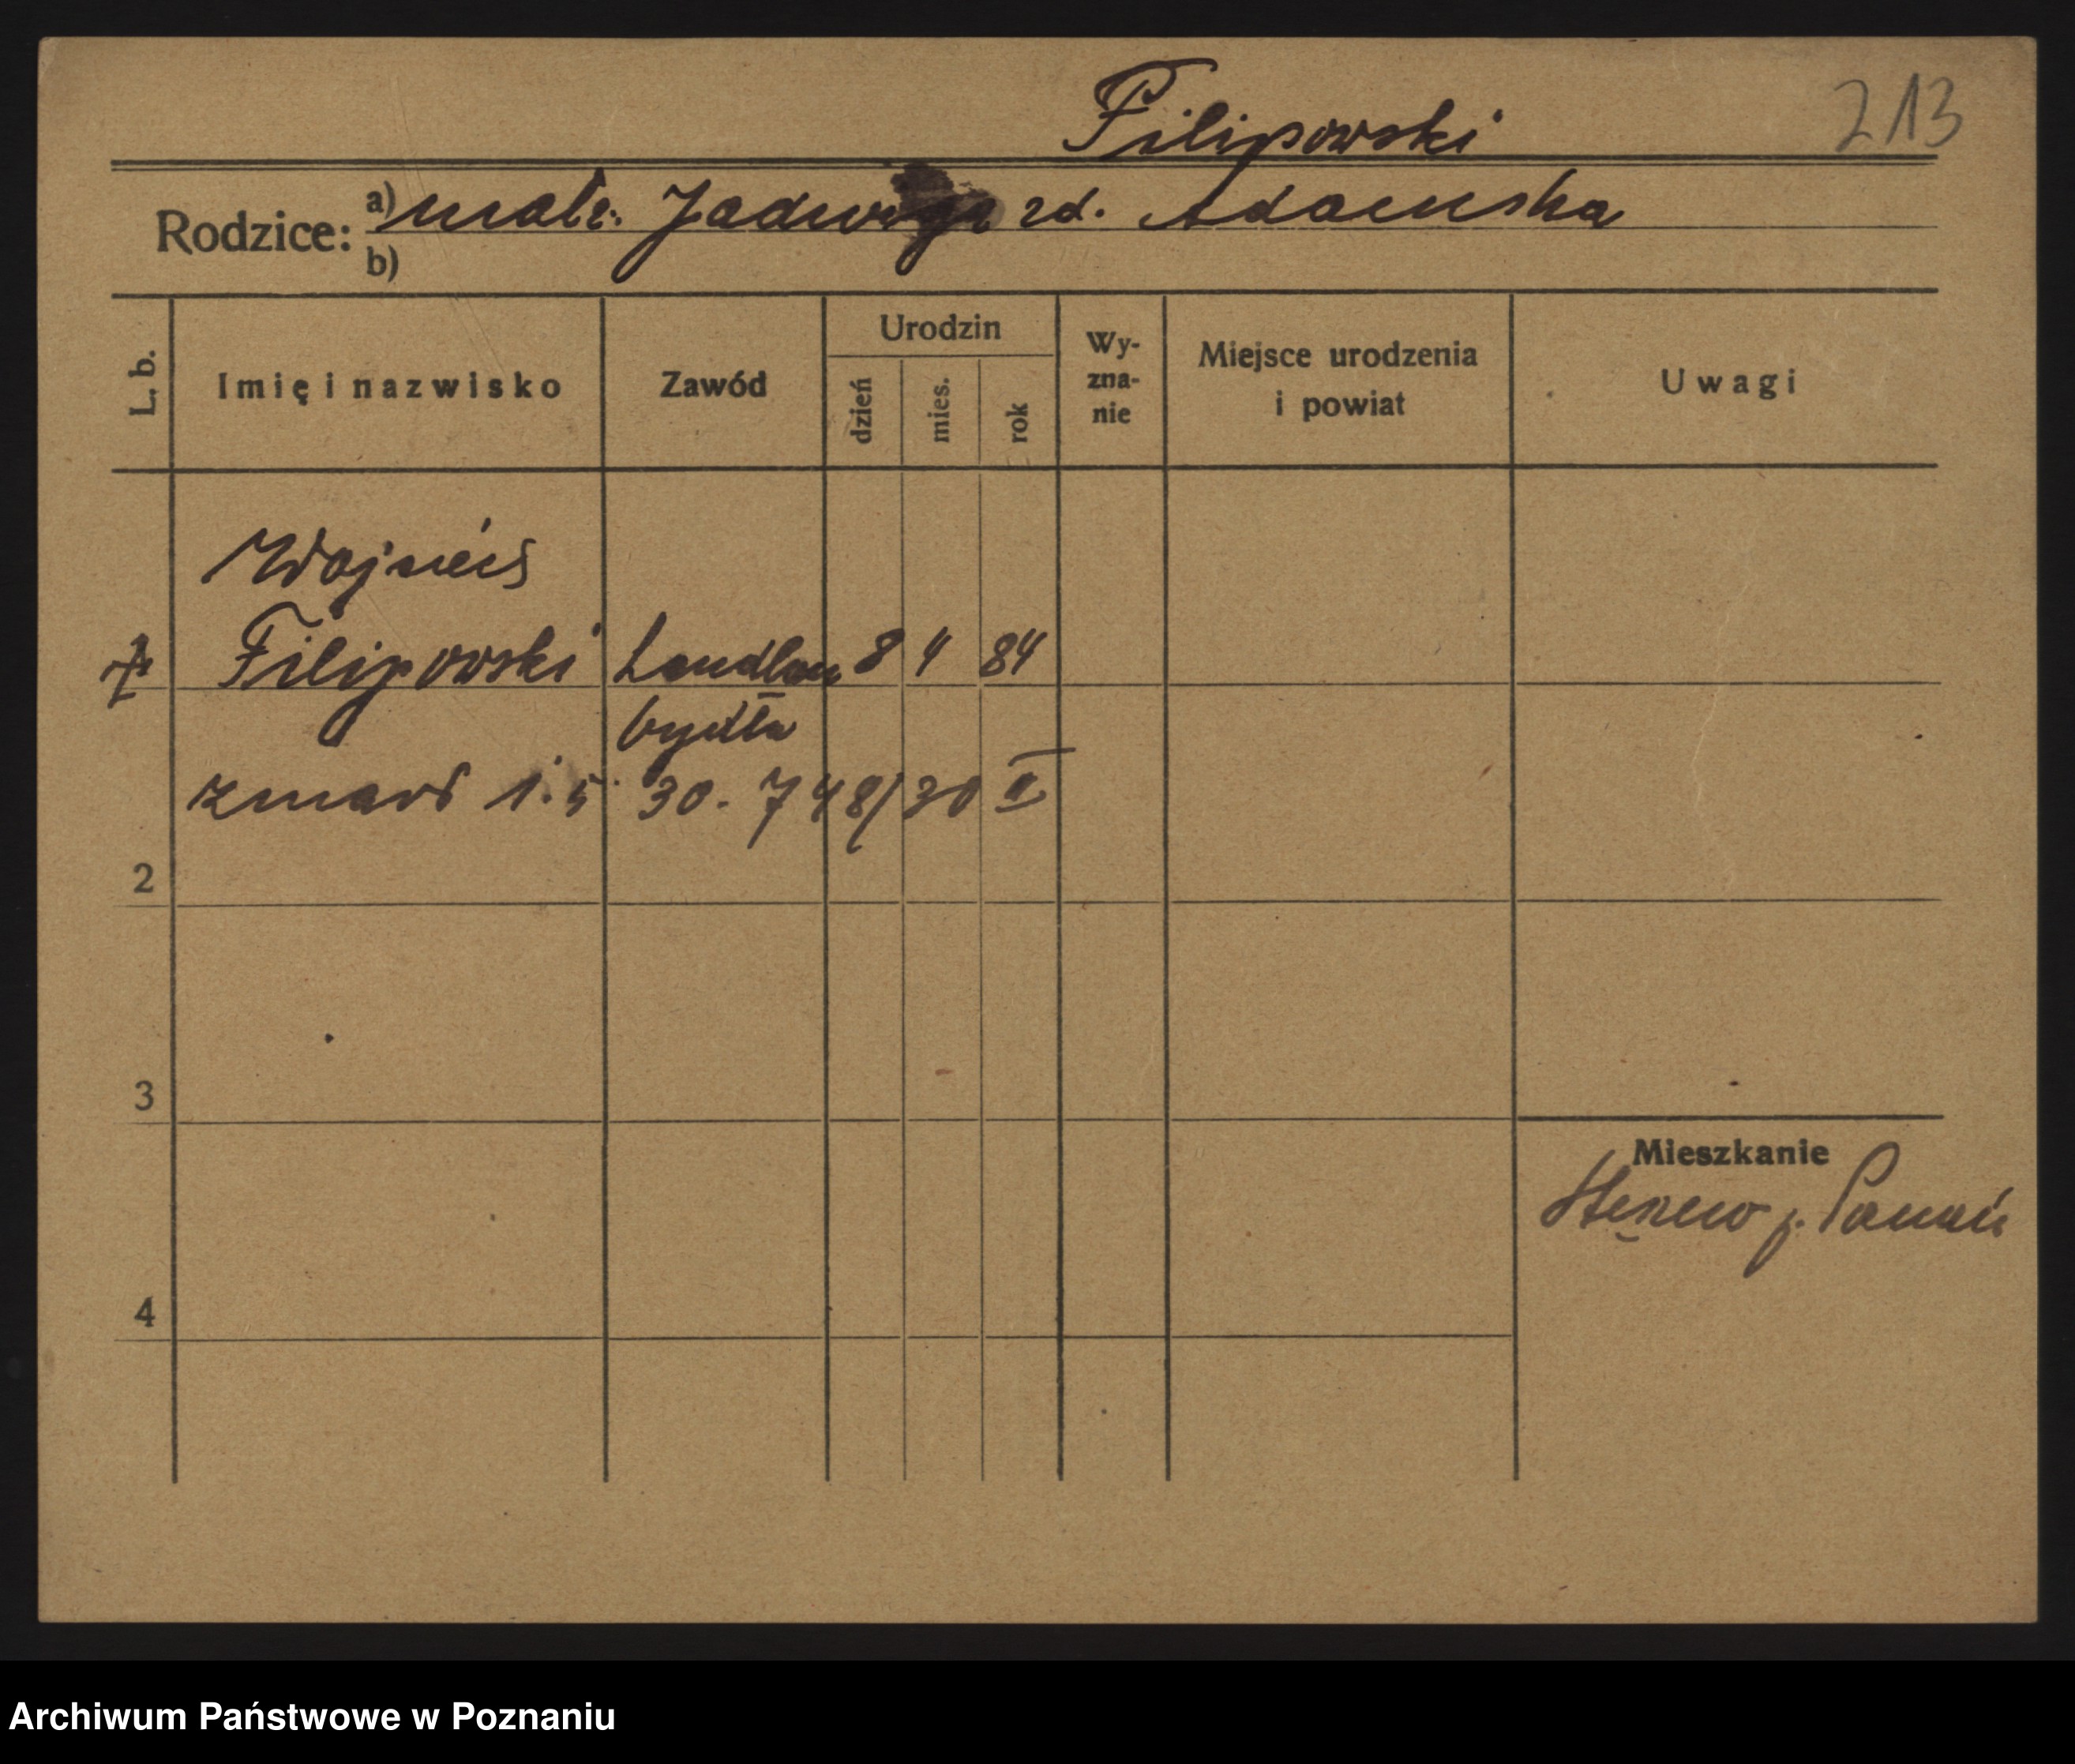 Filipowski 213
Rodzice: a) małż. Jadwiga zd. Adamska
b)
L. b. Imię i nazwisko Zawód Urodzin dzień mies. rok Wy-zna-nie Miejsce urodzenia i powiat Uwagi
Wojciech
1 Filipowski handlarz 8 4 84
bydła
zmarł 1. 5. 30. 748/30 II
2
3
Mieszkanie
p. Poznań
4
Archiwum Państwowe w Poznaniu